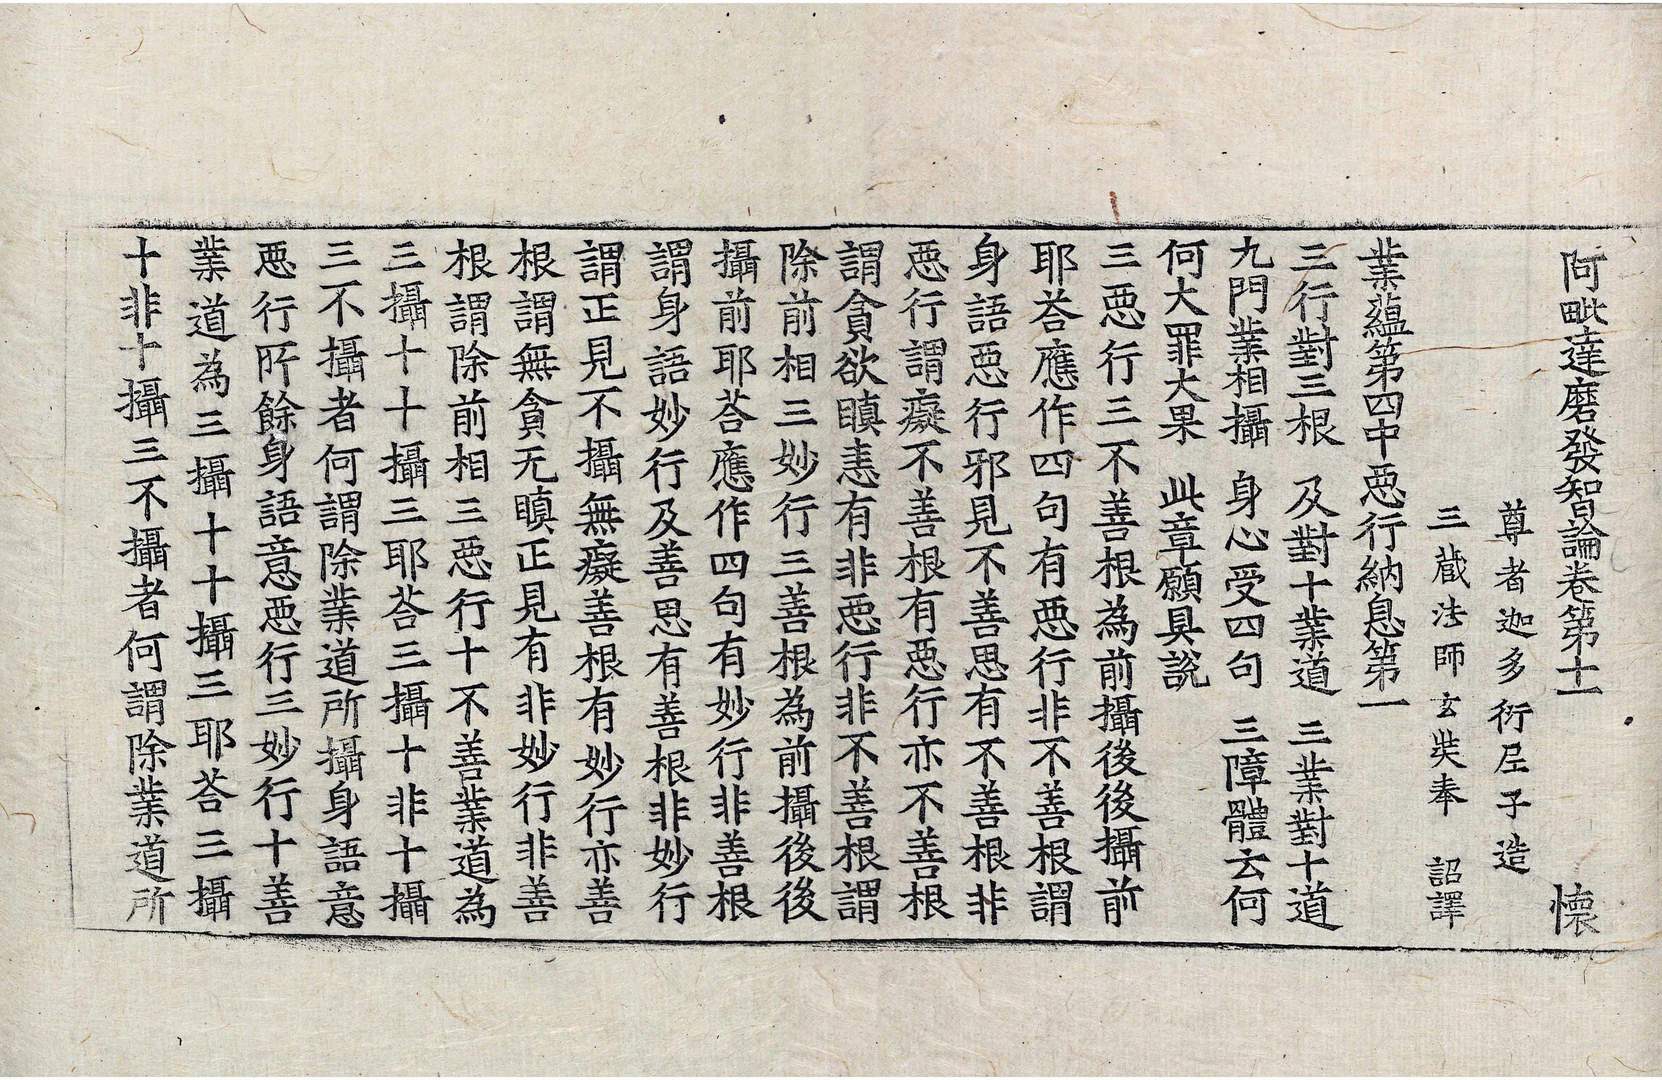 阿毗達磨發智論卷第十一　懷
尊者迦多衍尼子造
三藏法師玄奘奉　詔譯
業蘊第四中惡行納息第一
三行對三根　及對十業道　三業對十道
九門業相攝　身心受四句　三障體云何
何大罪大果　此章願具說
三惡行三不善根為前攝後後攝前
耶荅應作四句有惡行非不善根謂
身語惡行邪見不善思有不善根非
惡行謂癡不善根有惡行亦不善根
謂貪欲瞋恚有非惡行非不善根謂
除前相三妙行三善根為前攝後後
攝前耶荅應作四句有妙行非善根
謂身語妙行及善思有善根非妙行
謂正見不攝無癡善根有妙行亦善
根謂無貪无瞋正見有非妙行非善
根謂除前相三惡行十不善業道為
三攝十十攝三耶荅三攝十非十攝
三不攝者何謂除業道所攝身語意
惡行所餘身語意惡行三妙行十善
業道為三攝十十攝三耶荅三攝
十非十攝三不攝者何謂除業道所